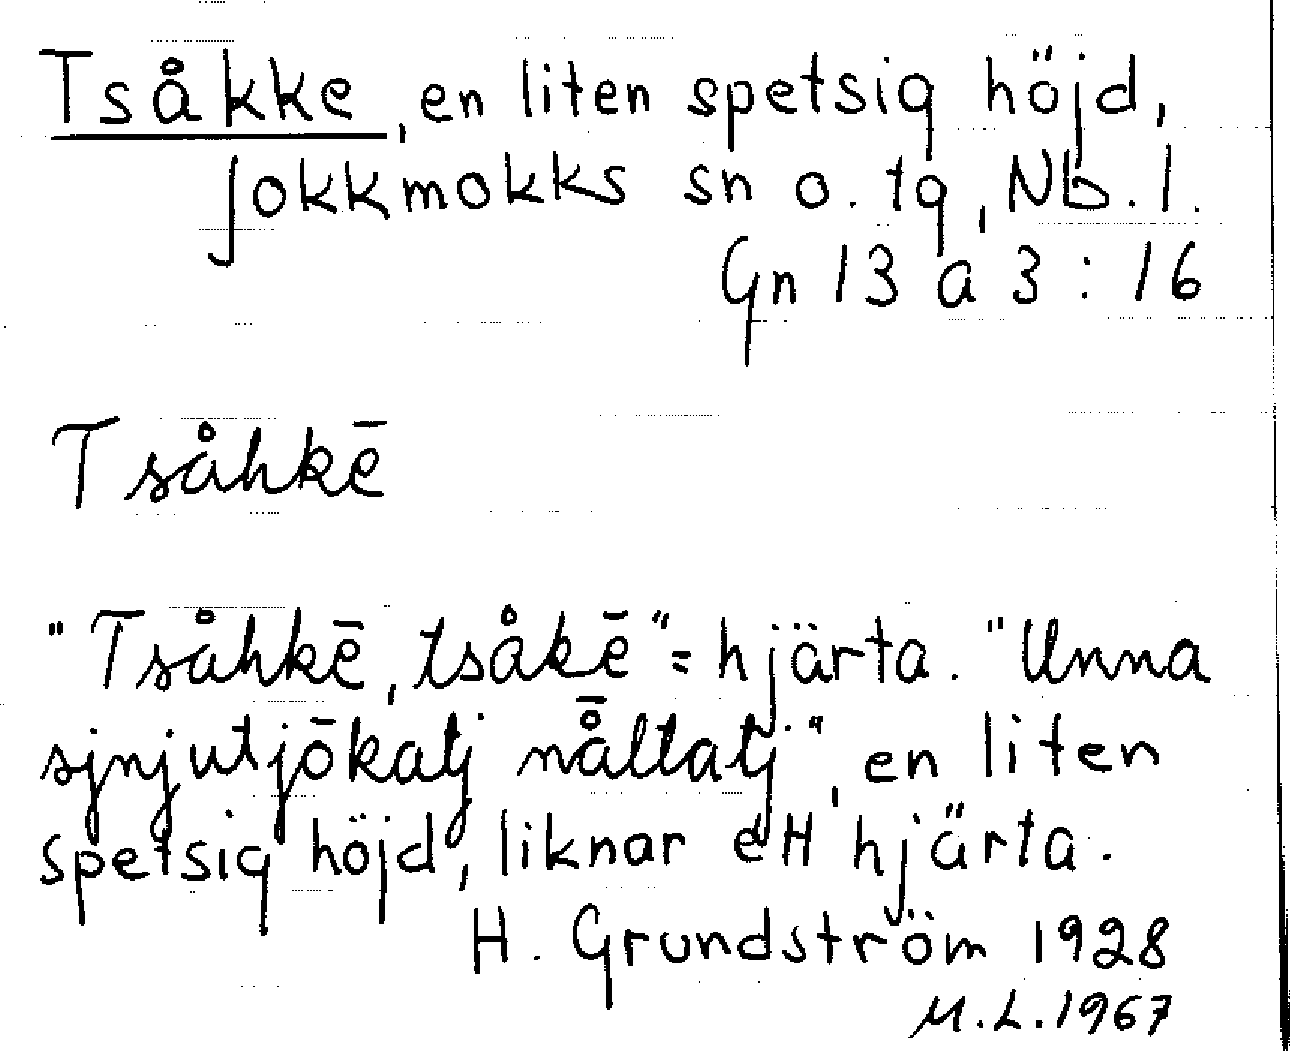 Tsåkke, en liten spetsig höjd,
Jokkmokks sn o. tg, Nb. l.
Gn 13 a 3 : 16
Tsåhkē
"Tsåhkē, tsåkē" = hjärta. "Unna
sjnjutjōkatj nå̄llatj", en liten
spetsig höjd, liknar ett hjärta.
H. Grundström 1928
M.L. 1967